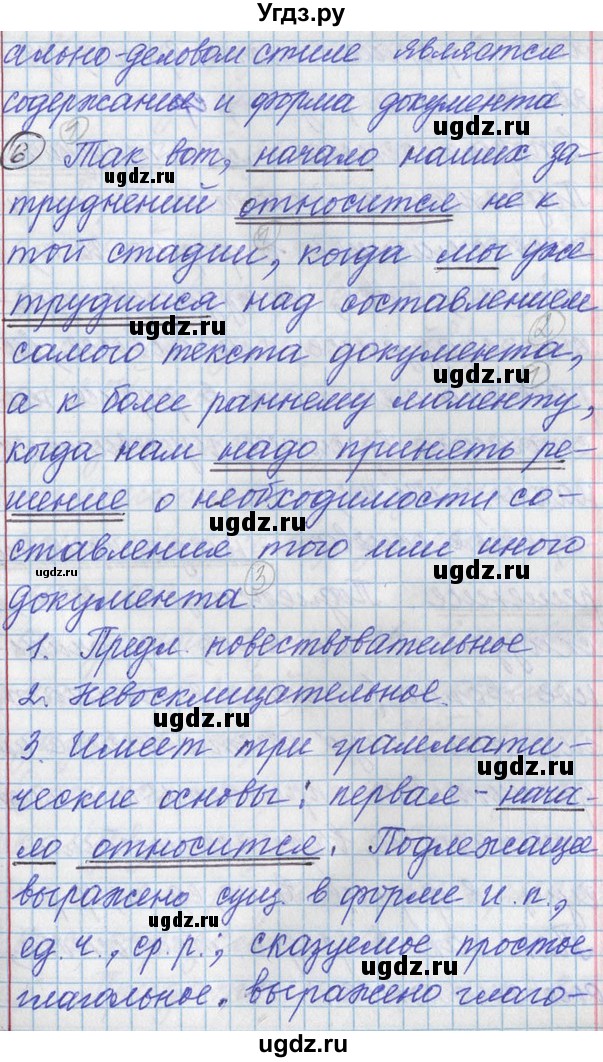 Угдз.ру
ально-деловом стиле является
содержание и форма документа.
6 1 Так вот, начало наших за-
ugdz.ru
ugdz.ru
труднений относится не к
ugdz.ru
той стадии, 1 когда мы уже
трудимся над составлением
ugdz.ru
2
самого текста документа,
ugdz.ru 1
а к более раннему моменту,
когда нам надо принять ре-
ugdz.ru
шение о необходимости со-
ugdz.ru
ставления того или иного
ugdz.ru
документа 3
ugdz.ru
1. Предл. повествовательное
2. Невосклицательное.
ugdz.ru
3. Имеет три граммати-
ugdz.ru
ческие основы: первая - нача-
ло относится. Подлежащее
ugdz.ru
выражено сущ. в форме и.п.,
ugdz.ru
ед.ч., ср.р.; сказуемое простое
ugdz.ru
глагольное, выражено глаго-
ugdz.ru